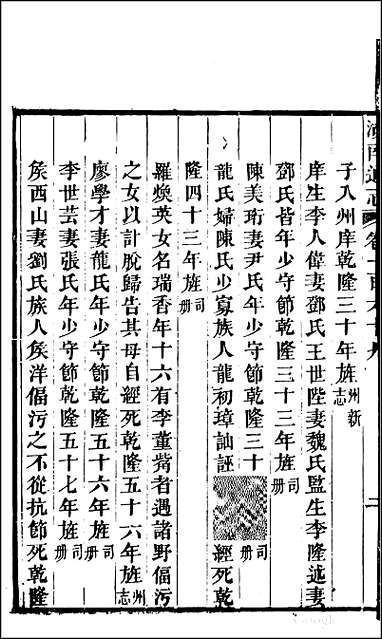 子入州庠乾隆三十年旌州新志
庠生李人偉妻鄧氏王世陛妻魏氏監生李隆述妻
鄧氏皆年少守節乾隆三十三年旌司册
陳美珩妻尹氏年少守節乾隆三十
司册
龍氏婦陳氏少寡族人龍初璋訕誣
經死乾
隆四十三年旌司册
羅煥英女名瑞香年十六有李董觜者遇諸野偪污
之女以計脫歸告其母自經死乾隆五十六年旌州志
廖學才妻龍氏年少守節乾隆五十六年旌司册
李世芸妻張氏年少守節乾隆五十七年旌司册
矦西山妻劉氏族人矦洋偪污之不從抗節死乾隆